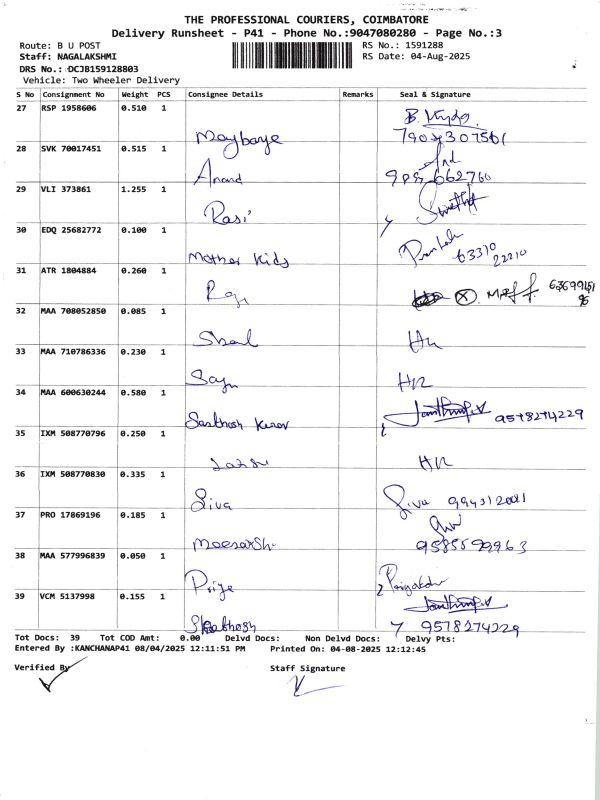 THE PROFESSIONAL COURIERS, COIMBATORE
Delivery Runsheet - P41 - Phone No.:9047080280 - Page No.:3
Route: B U POST RS No.: 1591288
Staff: NAGALAKSHMI RS Date: 04-Aug-2025
DRS No.: DCJB159128803
Vehicle: Two Wheeler Delivery
S No Consignment No Weight PCS Consignee Details Remarks Seal & Signature
27 RSP 1958606 0.510 1
28 SVK 70017451 0.515 1
Anand
29 VLI 373861 1.255 1
Rasi
30 EDQ 25682772 0.100 1
Mother Kids 63310
22210
31 ATR 1804884 0.260 1
32 MAA 708052850 0.085 1
33 MAA 710786336 0.230 1
34 MAA 600630244 0.580 1
9578274229
35 IXM 508770796 0.250 1
36 IXM 508770830 0.335 1
Siva Siva
37 PRO 17869196 0.185 1
9585599963
38 MAA 577996839 0.050 1
Priya
39 VCM 5137998 0.155 1
9578274229
Tot Docs: 39 Tot COD Amt: 0.00 Delvd Docs: Non Delvd Docs: Delvy Pts:
Entered By :KANCHANAP41 08/04/2025 12:11:51 PM Printed On: 04-08-2025 12:12:45
Verified By Staff Signature